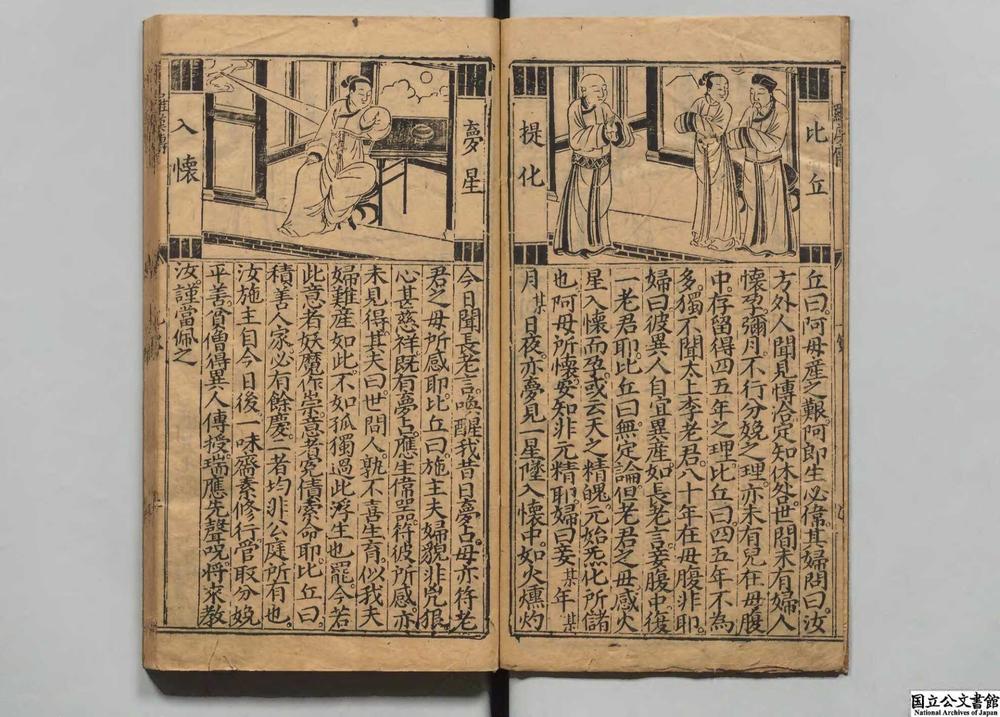 比丘
提化
丘曰。阿母産之艱。阿郎生必偉。其婦問曰。汝
方外人聞見博洽定知休咎。世間未有婦人
懷孕彌月。不行分娩之理。亦未有兒在母腹
中。存留得四五年之理。比丘曰四五年不為
多。獨不聞太上李老君。八十年在母腹非耶。
婦曰彼異人自宜異産。如長老言。妾腹中復
一老君耶。比丘曰。無定論。但老君之母感火
星入懷而孕。或云天之精魄。元始炁化所儲
也。阿母所懷。安知非元精耶。婦曰妾某年某
月某日夜。亦夢見一星墜入懷中。如火燻灼
夢星
入懷
今日聞長老言。喚醒我昔日夢占。毋亦符老
君之母所感耶。比丘曰。施主夫婦貌非兇狠。
心甚慈祥。既有夢占。應生偉器。符彼所感。亦
未見得。其夫曰。世間人孰不喜生育。似我夫
婦難産如此。不如孤獨過此浮生也罷。今若
此意者妖魔作祟。意者冤債索命耶。比丘曰。
積善人家。必有餘慶。二者均非公庭所有也。
汝施主自今日後。一味齋素修行。管取分娩
平善。貧僧得異人傳授。瑞應先聲呪。將來教
汝。謹當佩之
国立公文書館
National Archives of Japan